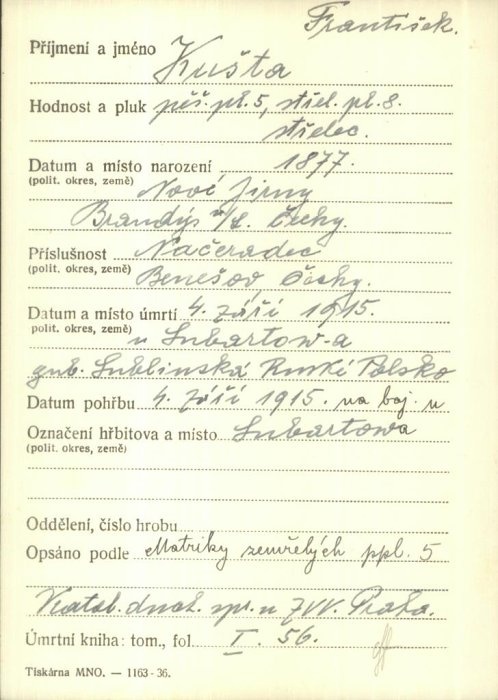 František.
Příjmení a jméno Kušta
Hodnost a pluk pěš. pl. 5, střel. pl. 8.
střelec.
Datum a místo narození 1877.
(polit. okres, země) Nové Jirny
Brandýs n/L. Čechy.
Příslušnost Načeradec
(polit. okres, země) Benešov Čechy.
Datum a místo úmrtí 4. září 1915.
polit. okres, země) u Lubartow-a
gub. Lublinská Ruské Polsko
Datum pohřbu 4. září 1915. na boj. u
Označení hřbitova a místo Lubartowa
(polit. okres, země)
Oddělení, číslo hrobu
Opsáno podle Matriky zemřelých ppl. 5
duch. spr. u ZVV. Praha.
Úmrtní kniha: tom., fol. I. 56.
Tiskárna MNO. — 1163-36.